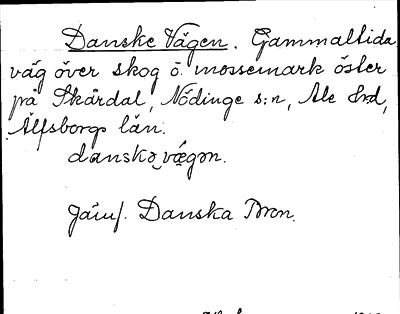 Danske Vägen. Gammaltida
väg över skog o. mossemark öster
på Skårdal, Nödinge s:n, Ale hrd,
Älfsborgs län.
danskə vǽgən.
Jämf. Danska Bron.